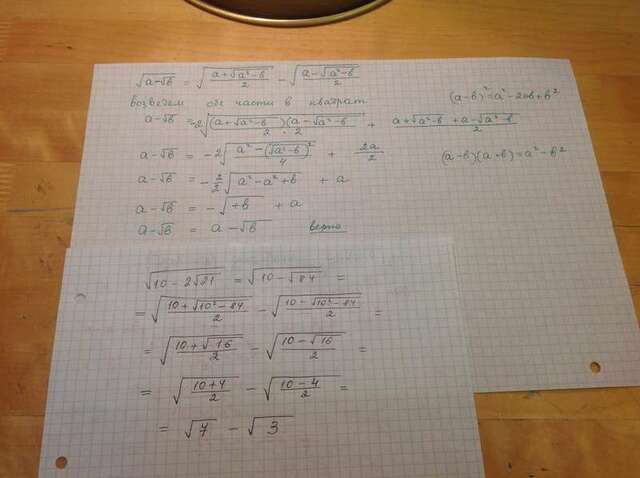 √(a-√b) = √((a+√(a²-b))/2) - √((a-√(a²-b))/2)
возведем обе части в квадрат
(a-b)² = a² - 2ab + b²
a-√b = -2√((a+√(a²-b))(a-√(a²-b))/(2·2)) + (a+√(a²-b) + a-√(a²-b))/2
a-√b = -2√((a² - (√(a²-b))²)/4) + 2a/2
(a-b)(a+b) = a² - b²
a-√b = -2/2 √(a²-a²+b) + a
a-√b = -√(+b) + a
a-√b = a-√b верно
√(10-2√21) = √(10-√84) =
= √((10+√(10²-84))/2) - √((10-√(10²-84))/2) =
= √((10+√16)/2) - √((10-√16)/2) =
= √((10+4)/2) - √((10-4)/2) =
= √7 - √3